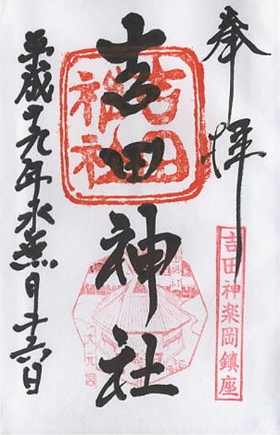 奉拝
吉田神楽岡鎮座
吉田神社
吉田神社
大元宮
平成十九年水無月十六日